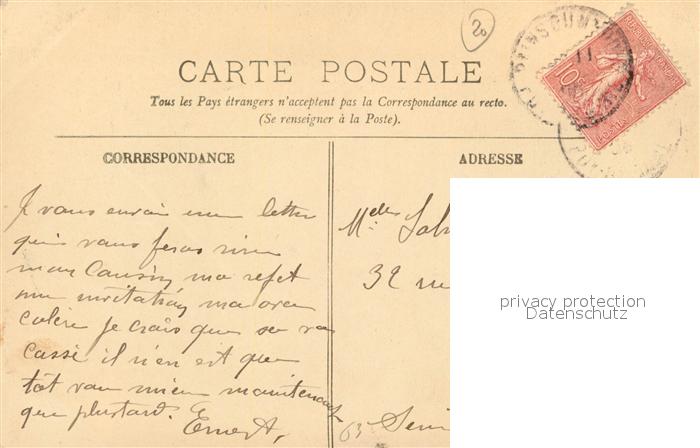 20
CARTE POSTALE
Tous les Pays étrangers n'acceptent pas la Correspondance au recto.
(Se renseigner à la Poste).
CORRESPONDANCE
ADRESSE
Je vous envoi une lettre
qui vous feras rire
mon Cousin ma refet
une invitation ma
colère je crois que sa va
cassé il n'en est que
tôt vau mieu maintenant
que plustard. Ernest,
Melles
32 rue
privacy protection
Datenschutz
10